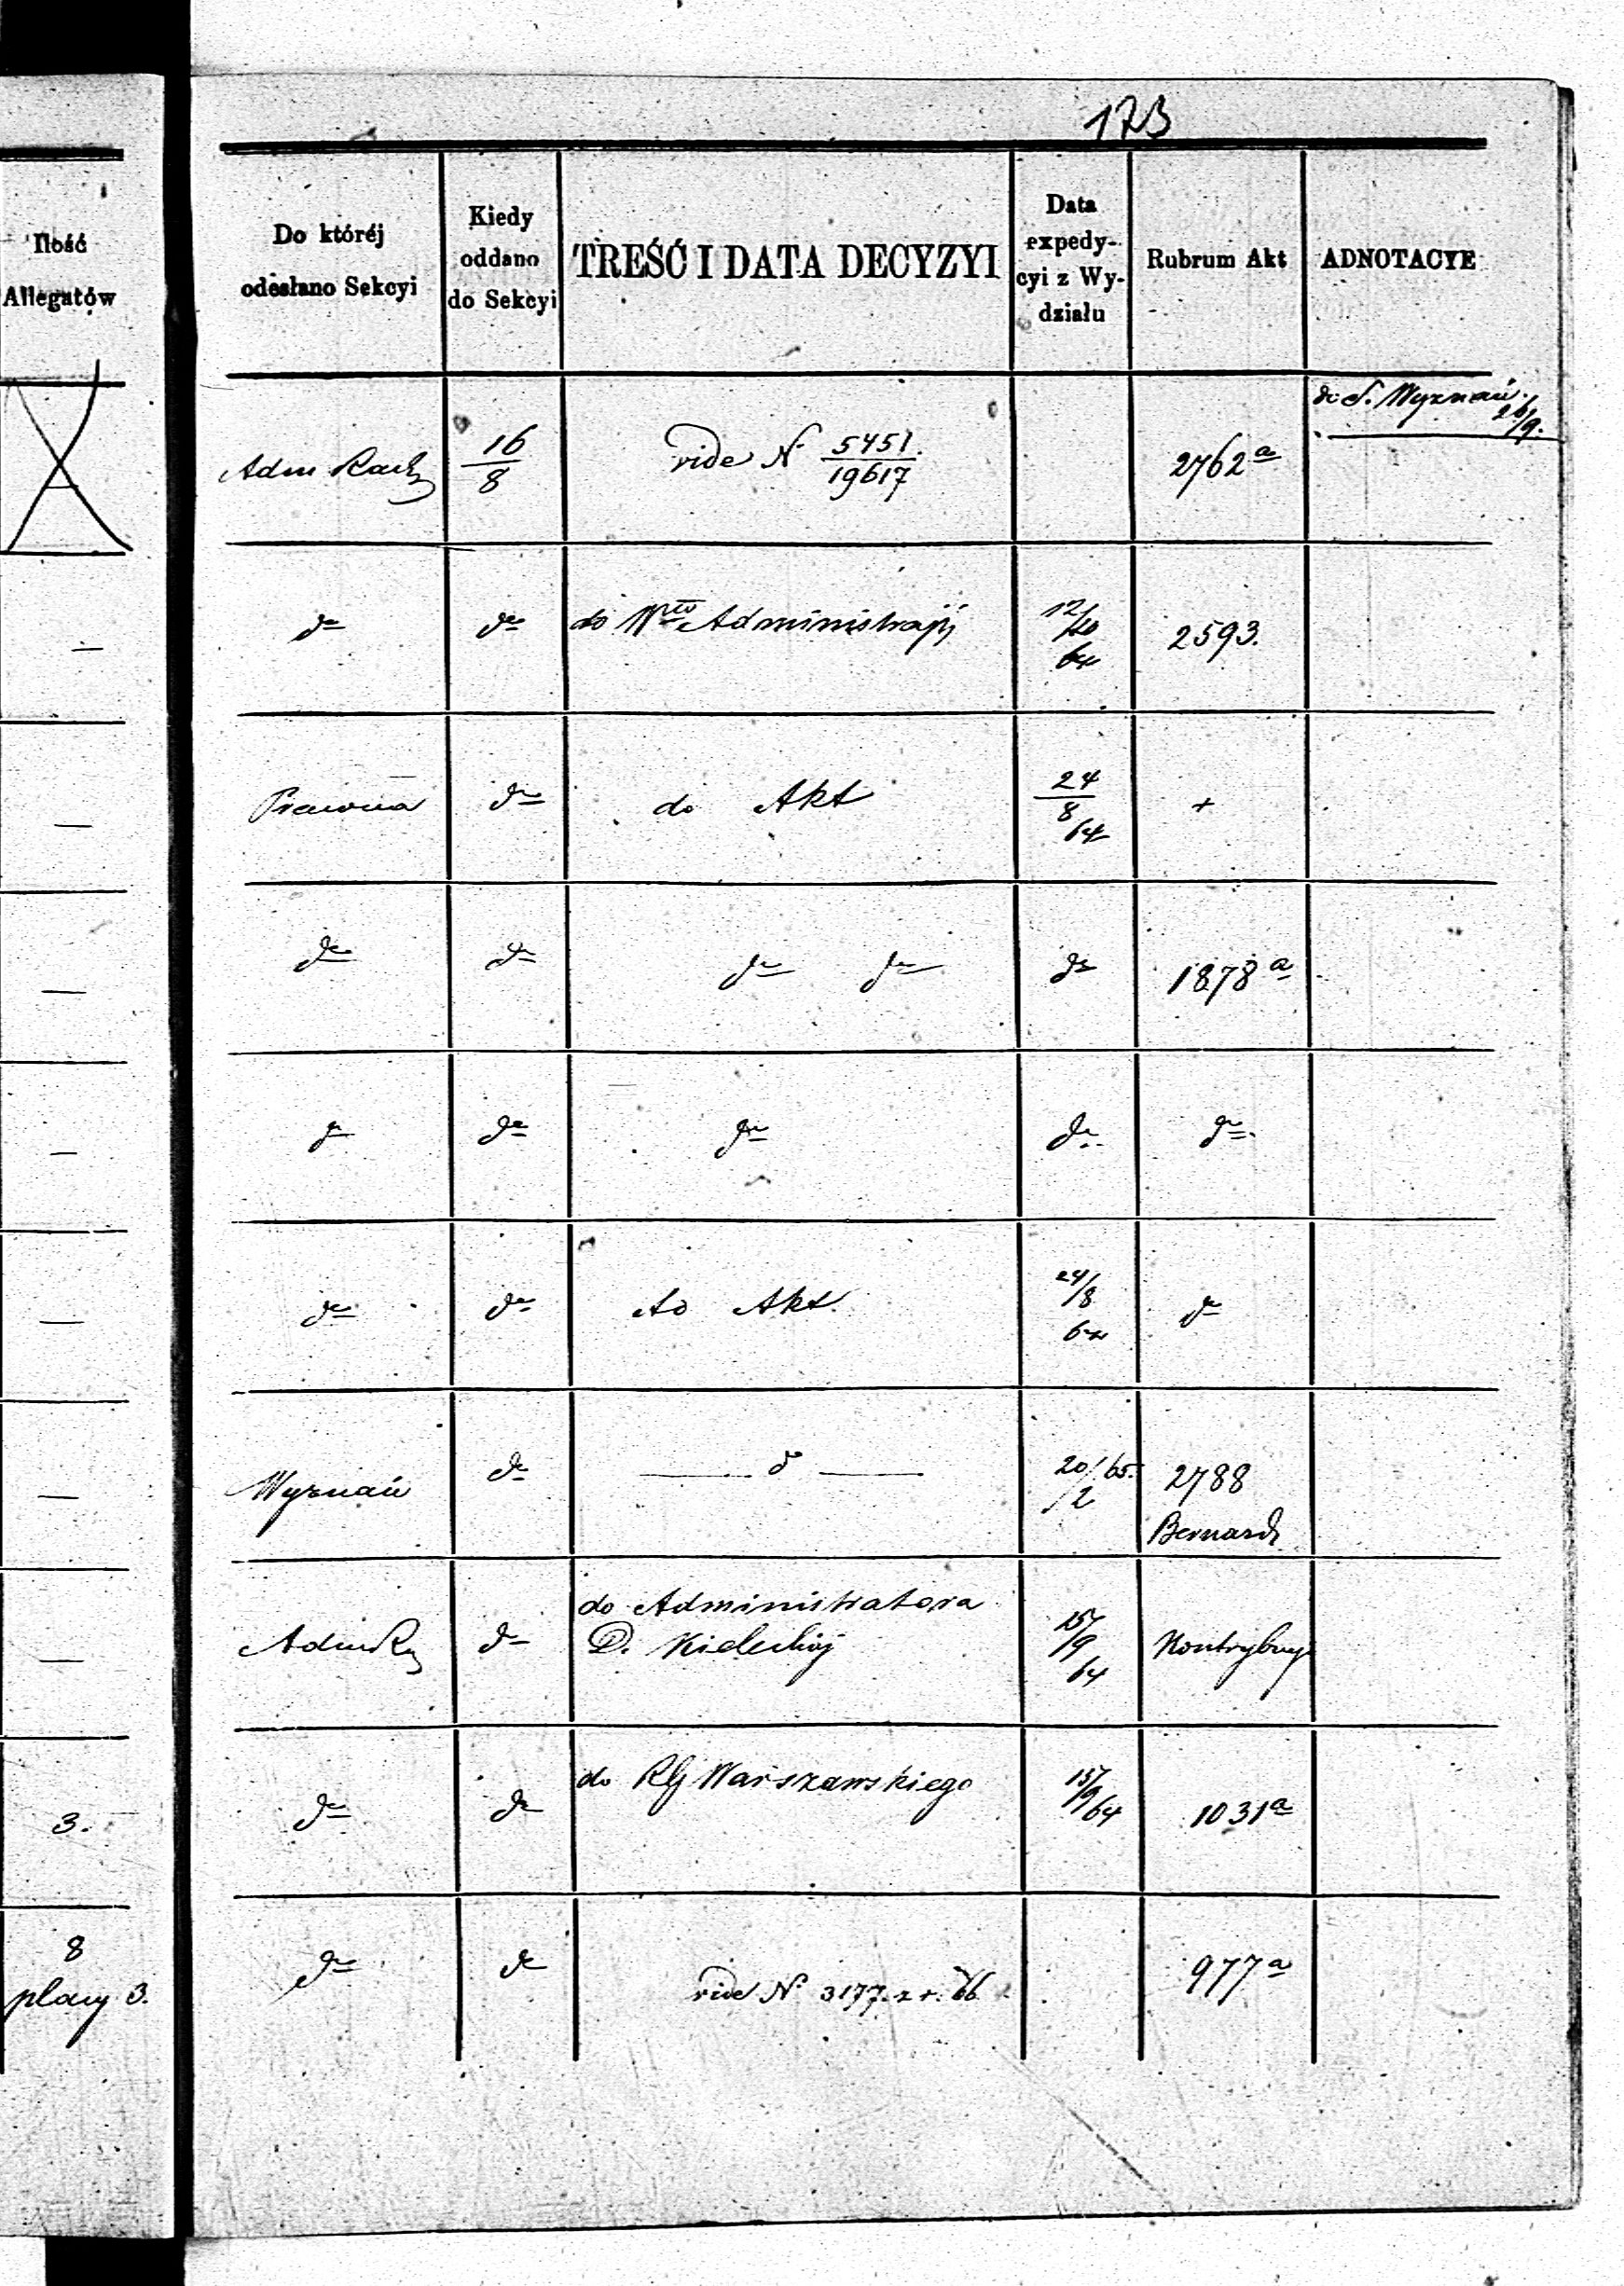 173
Ilość
Allegatów
Do któréj
odesłano Sekcyi
Kiedy
oddano
do Sekcyi
TREŚĆ I DATA DECYZYI
Data
expedy-
cyi z Wy-
działu
Rubrum Akt
ADNOTACYE
do S. Wyznań.
26/9.
Adm Rach
16/8
vide N. 5451./19617
2762 a
—
do
do
do Wta Administracyj
12/10
64
2593.
—
Prawna
do
do Akt
24/8
64
+
—
do
do
do do
do
1878 a
—
do
do
do
do
do
—
do
do
do Akt
24/8
64
do
—
Wyznań
do
do
20/2 65.
2788
Bernard
—
do Administratora
D. Kieleckiej
do
15/9
64
Kontrybuy
3.
do
do
do RG Warszawskiego
15/9 64
1031 a
8
plany 3.
do
do
vide N. 3177. z r. 66
977 a